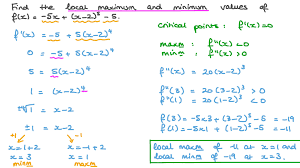 Find the local maximum and minimum values of
f(x) = -5x + (x-2)⁵ - 5.
f'(x) = -5 + 5(x-2)⁴
0 = -5 + 5(x-2)⁴
5 = 5(x-2)⁴
1 = (x-2)⁴
±⁴√1 = x-2
±1 = x-2
+1 -1
x = 1+2 x = -1+2
x = 3 x = 1
minm maxm
critical points: f'(x)=0
maxm: f"(x) < 0
minm: f"(x) > 0
f"(x) = 20(x-2)³
f"(3) = 20(3-2)³ > 0
f"(1) = 20(1-2)³ < 0
f(3) = -5×3 + (3-2)⁵ - 5 = -19
f(1) = -5×1 + (1-2)⁵ - 5 = -11
local maxm of -11 at x=1 and
local minm of -19 at x=3.